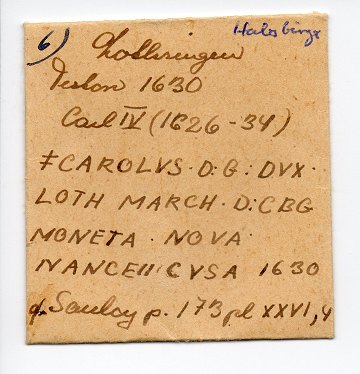 6) Habsburg
Lothringen
Teston 1630
Carl IV (1626-34)
‡CAROLVS · D · G : DVX ·
LOTH MARCH · D : C B G
MONETA · NOVA ·
NANCEII CVSA 1630
cf. Saulcy p. 173 pl XXVI, 4